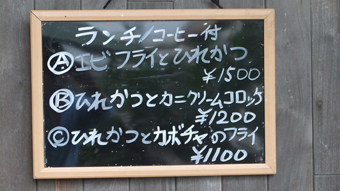 ランチ/コーヒー付
Ⓐエビフライとひれかつ
¥1500
Ⓑひれかつとカニクリームコロッケ
¥1200
Ⓒひれかつとカボチャのフライ
¥1100